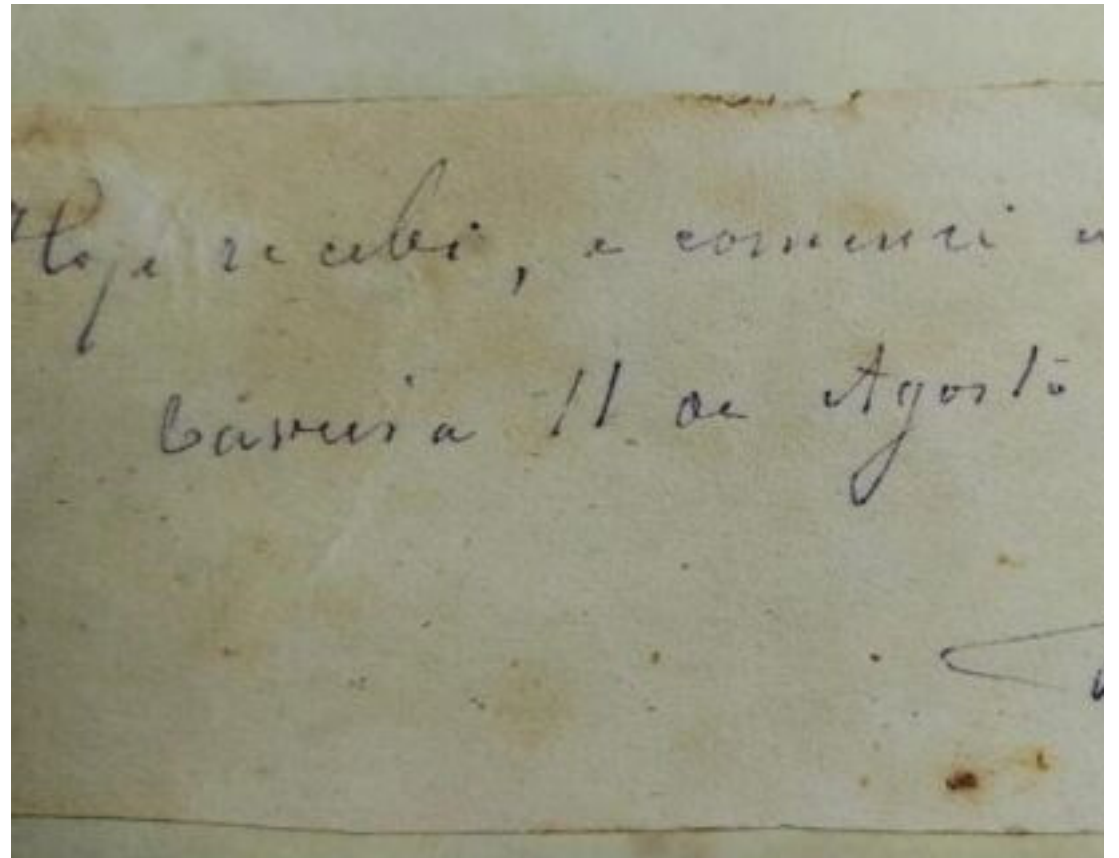 Hoje recebi, e comencei a
11 de Agosto